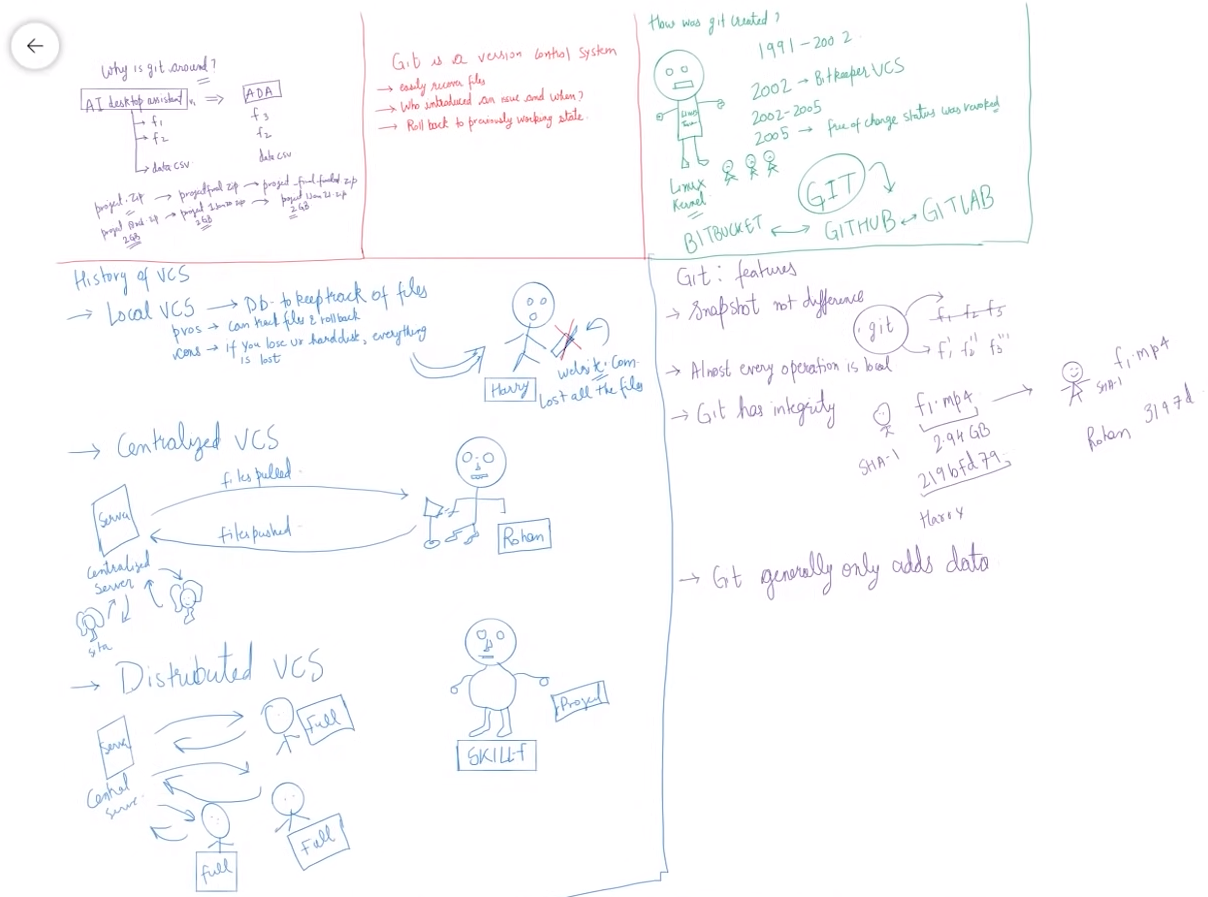 Why is git around?
AI desktop assistant v1 ⇒ ADA
f1
f2
data csv
f3
f2
data csv
project.zip → projectfinal zip → project_final zip
project zip → project zip → project zip
2GB 2GB 2GB
Git is a version control system
→ easily recover files
→ Who introduced an issue and when?
→ Roll back to previously working state.
How was git created?
1991-2002
2002 → Bitkeeper VCS
2002-2005
2005 → free of charge status was revoked
Linux
Kernel
GIT
BITBUCKET ↔ GITHUB ↔ GITLAB
History of VCS
→ Local VCS → Db - to keep track of files
pros → can track files & rollback
cons → if you lose ur harddisk, everything
is lost
Harry
website.com
Lost all the files
→ Centralized VCS
files pulled
Server
files pushed
Rohan
Centralized
server
→ Distributed VCS
Server
Full
Central
Full
Full
Project
SKILLF
Git: features
→ Snapshot not difference
git
f1 f2 f3
f1' f2'' f3'''
→ Almost every operation is local
→ Git has integrity
f1.mp4
2.94 GB
SHA-1
219bfd79
Harry
f1.mp4
SHA-1
3197d
Rohan
→ Git generally only adds data